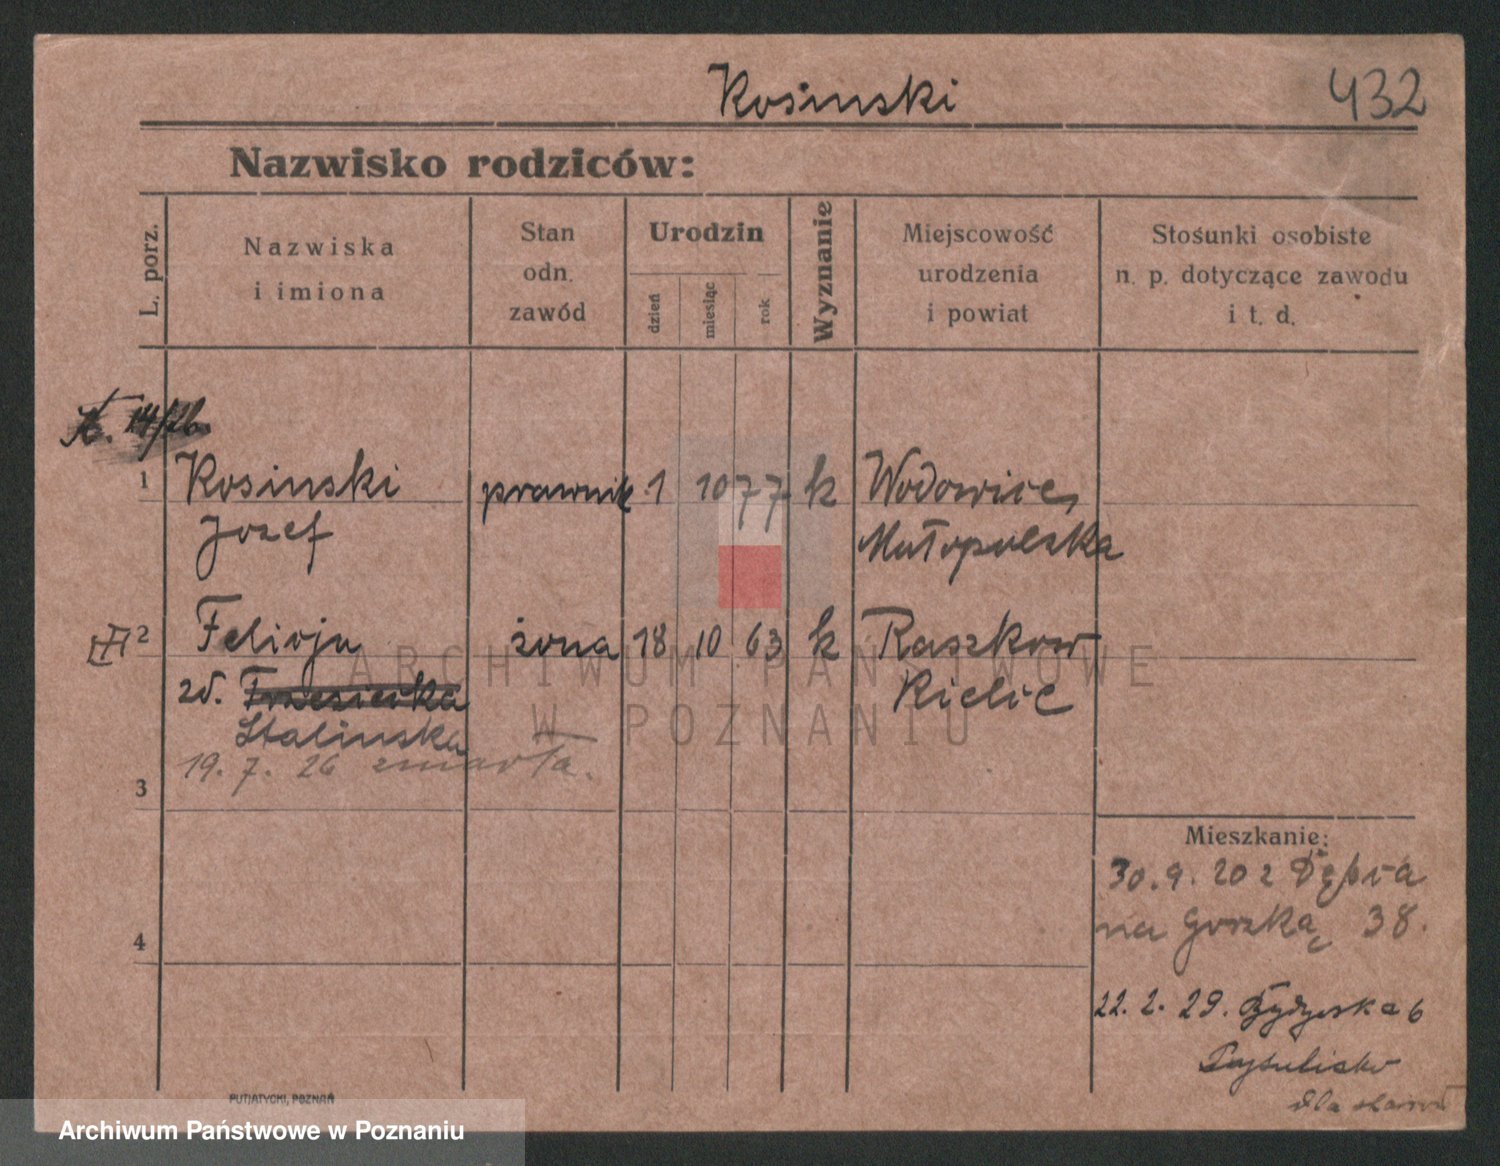 Kosinski
432
Nazwisko rodziców:
L. porz.
Nazwiska
i imiona
Stan
odn.
zawód
Urodzin
dzień
miesiąc
rok
Wyznanie
Miejscowość
urodzenia
i powiat
Stosunki osobiste
n. p. dotyczące zawodu
i t. d.
14/26.
1 Kosinski prawnik 1 10 77 k Wodowice,
Jozef Małopolska
2 Felicja żona 18 10 63 k Raszkow
zd. Kielc
Stalinska
19. 7. 26 zmarła.
3
4
Mieszkanie:
30. 9. 20 z Dębca
na Gorską 38.
22. 2. 29. 6
dla
PUTIATYCKI, POZNAŃ
ARCHIWUM PAŃSTWOWE
W POZNANIU
Archiwum Państwowe w Poznaniu